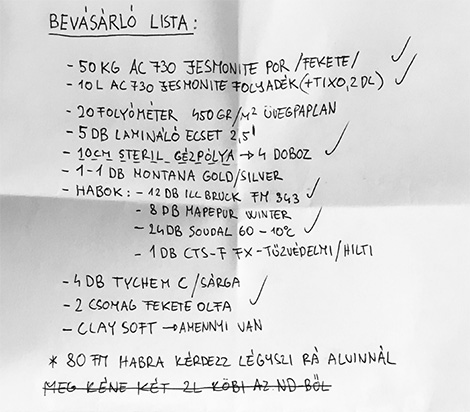 BEVÁSÁRLÓ LISTA:
- 50 KG AC 730 JESMONITE POR /FEKETE/
- 10 L AC 730 JESMONITE FOLYADÉK (+TIXO, 2DL)
- 20 FOLYÓMÉTER 450 GR/M² ÜVEGPAPLAN
- 5 DB LAMINÁLÓ ECSET 2,5"
- 10CM STERIL GÉZPÓLYA → 4 DOBOZ
- 1-1 DB MONTANA GOLD/SILVER
- HABOK: - 12 DB ILLBRUCK FM 343
- 8 DB MAPEPUR WINTER
- 24DB SOUDAL 60 -10°C
- 1 DB CTS-F FX - TŰZVÉDELMI/HILTI
- 4 DB TYCHEM C/SÁRGA
- 2 CSOMAG FEKETE OLFA
- CLAY SOFT → AMENNYI VAN
* 80 FM HABRA KÉRDEZZ LÉGYSZI RÁ ALVINNÁL
MEG KÉNE KÉT 2L KÖBI AZ ND-BŐL